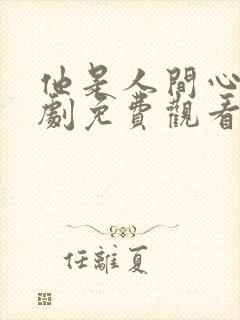 他是人間心
劇免費觀看
任離夏